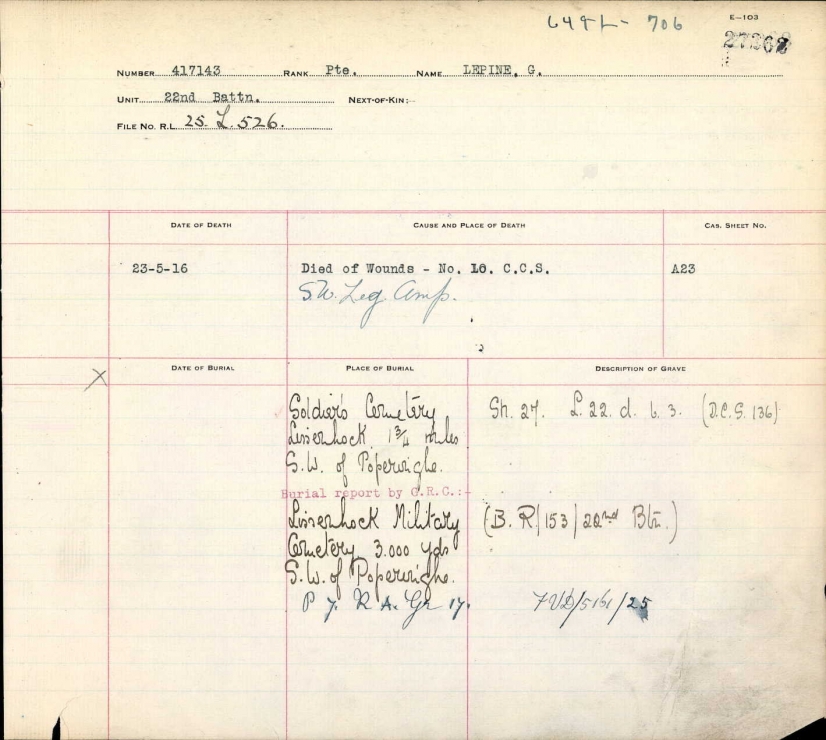 649-L- 706
E-103
NUMBER 417143 RANK Pte. NAME LEPINE, G.
UNIT 22nd Battn. NEXT-OF-KIN:-
FILE NO. R.L. 25. L. 526.
DATE OF DEATH CAUSE AND PLACE OF DEATH CAS. SHEET NO.
23-5-16 Died of Wounds - No. 10. C.C.S. A23
S.W. Leg Amp.
DATE OF BURIAL PLACE OF BURIAL DESCRIPTION OF GRAVE
X
Soldier's Cemetery Sh. 27. L. 22. d. 6. 3. (D.C.S. 136)
Lissenhock 1 3/4 miles
S.W. of Poperinghe.
Burial report by G.R.C.:-
Lissenhock Military (B. R/153/22nd Btn.)
Cemetery 3.000 yds
S.W. of Poperinghe.
P 7. R A. Gr 17. 7VD/5161/25